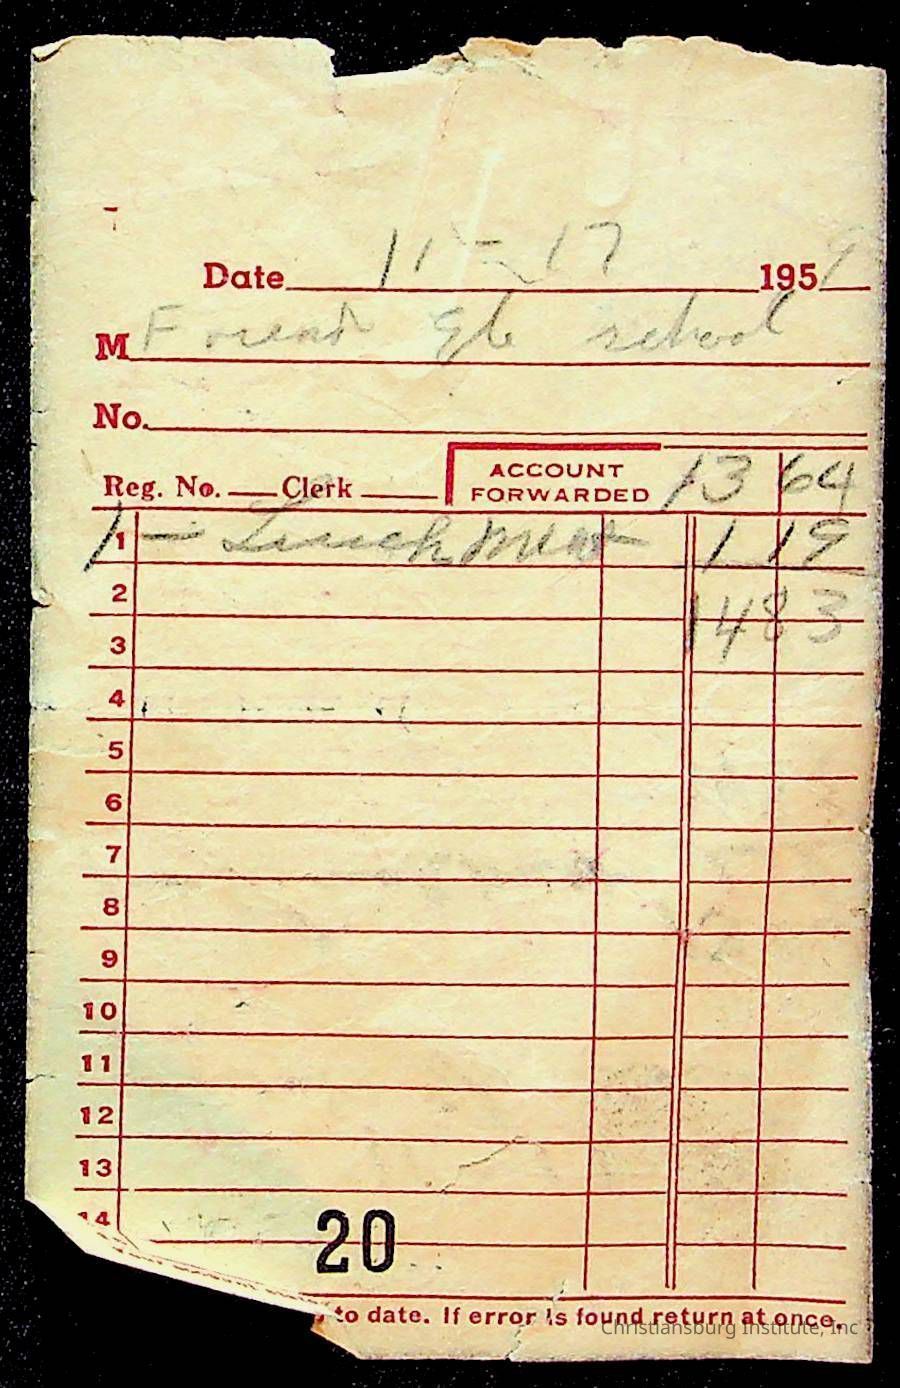 Date 11 - 17 1959
M Friend Ele school
No.
Reg. No. Clerk ACCOUNT FORWARDED 13 64
1 1 - Lunch Meat 1 19
2 14 83
3
4
5
6
7
8
9
10
11
12
13
14
20
to date. If error is found return at once.
Christiansburg Institute, Inc